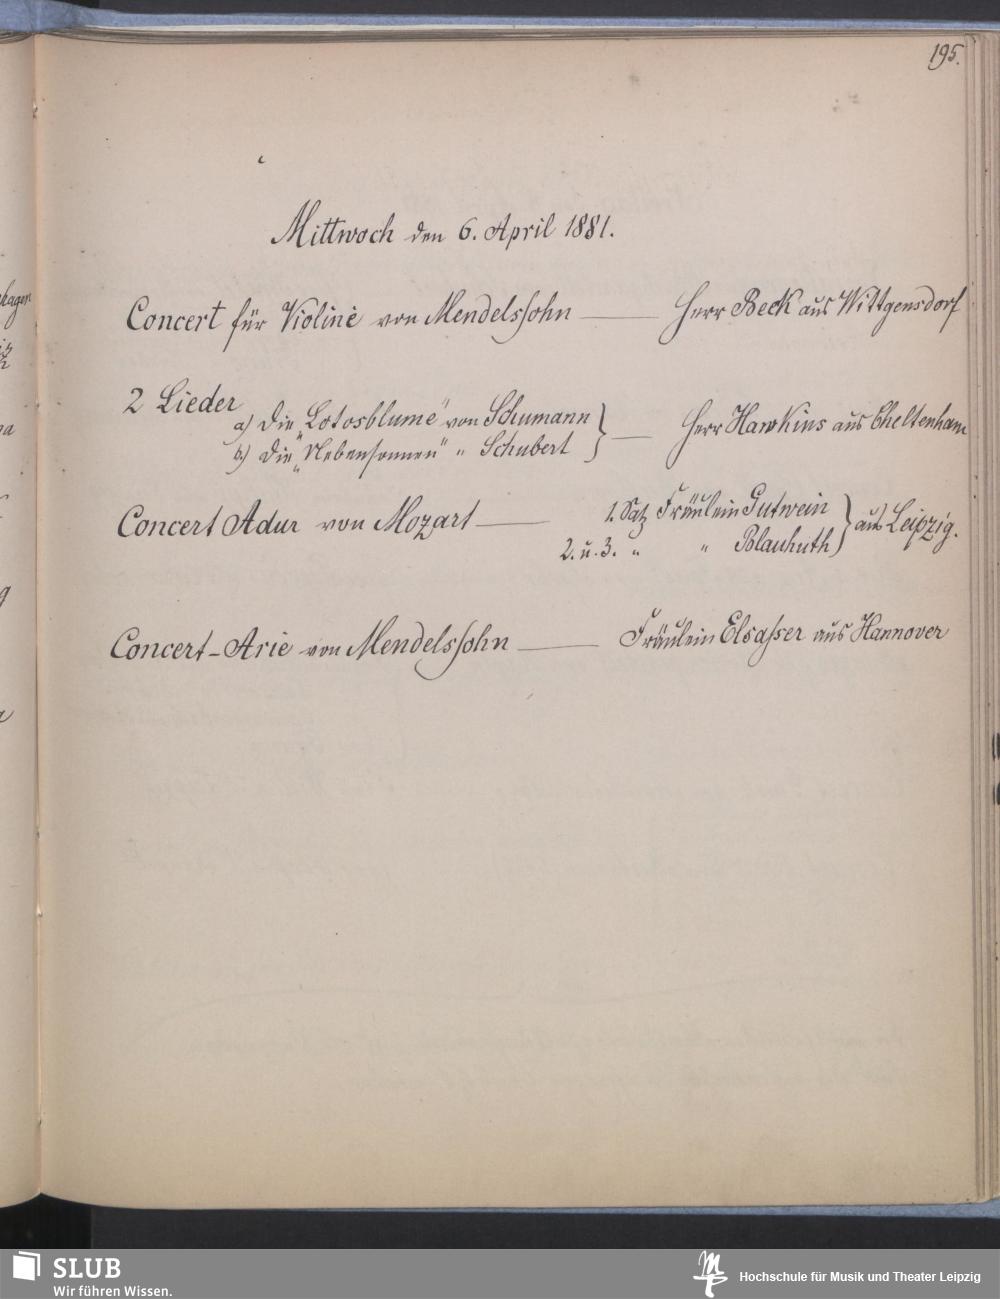 195.
Mittwoch den 6. April 1881.
Concert für Violine von Mendelssohn — Herr Beck aus Wittgensdorf
2 Lieder
a) Die „Lotosblume" von Schumann
b.) Die „Nebensonnen" " Schubert } — Herr Hawkins aus Cheltenham
Concert Adur von Mozart — 1. Satz Fräulein Gutwein
2. u. 3. " " Blauhuth } aus Leipzig.
Concert-Arie von Mendelssohn — Fräulein Elsasser aus Hannover
SLUB
Wir führen Wissen.
Hochschule für Musik und Theater Leipzig